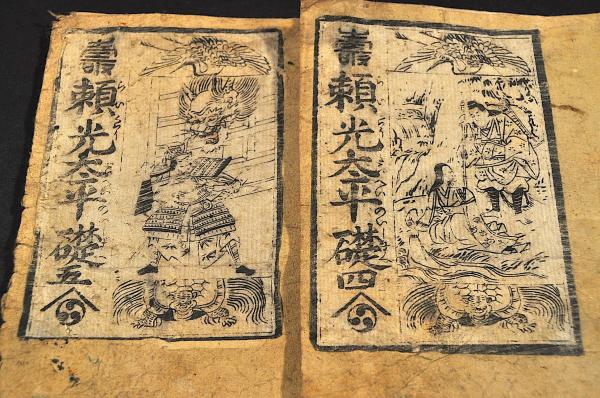 壽
頼光太平礎四
壽
頼光太平礎五